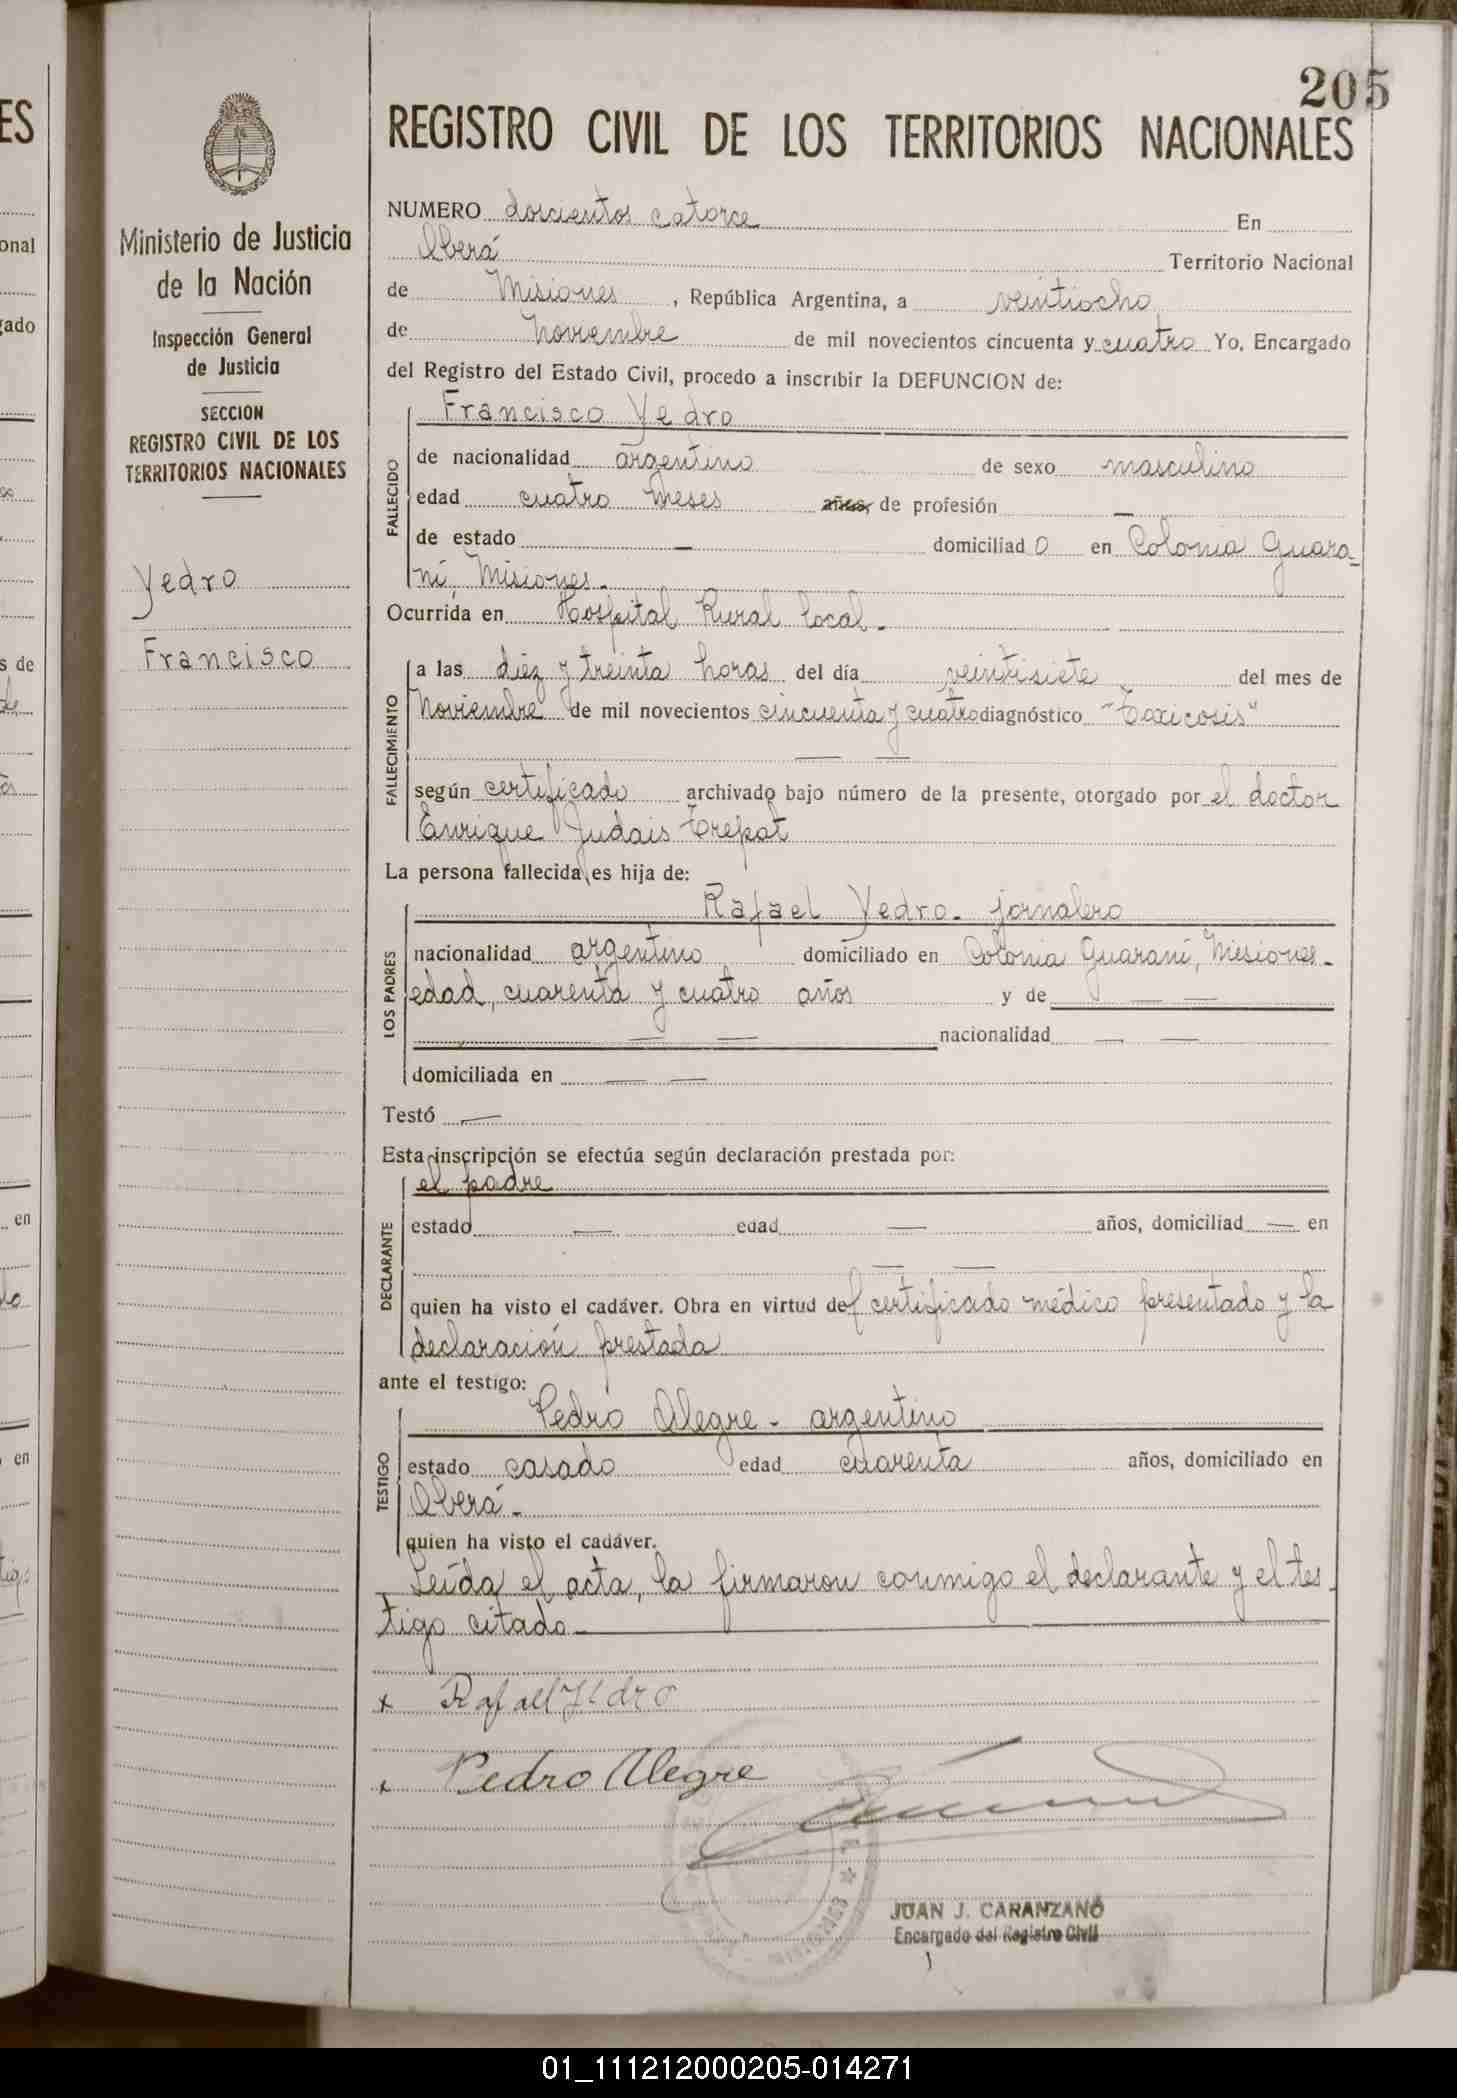 205
REGISTRO CIVIL DE LOS TERRITORIOS NACIONALES
Ministerio de Justicia
de la Nación
Inspección General
de Justicia
SECCION
REGISTRO CIVIL DE LOS
TERRITORIOS NACIONALES
Yedro
Francisco
NUMERO doscientos catorce En
Oberá Territorio Nacional
de Misiones, República Argentina, a veintiocho
de Noviembre de mil novecientos cincuenta y cuatro Yo, Encargado
del Registro del Estado Civil, procedo a inscribir la DEFUNCION de:
FALLECIDO
Francisco Yedro
de nacionalidad argentino de sexo masculino
edad cuatro meses años, de profesión —
de estado — domiciliado en Colonia Guara-
ní, Misiones.
Ocurrida en Hospital Rural local.
FALLECIMIENTO
a las diez y treinta horas del día veintisiete del mes de
Noviembre de mil novecientos cincuenta y cuatro diagnóstico "Toxicosis"
— —
según certificado archivado bajo número de la presente, otorgado por el doctor
Enrique Judais Trepat
La persona fallecida, es hija de:
LOS PADRES
Rafael Yedro - jornalero
nacionalidad argentino domiciliado en Colonia Guaraní, Misiones.
edad, cuarenta y cuatro años y de — —
— — nacionalidad — —
domiciliada en — —
Testó —
Esta inscripción se efectúa según declaración prestada por:
DECLARANTE
el padre
estado — edad — años, domiciliad — en
— —
quien ha visto el cadáver. Obra en virtud del certificado médico presentado y la
declaración prestada
ante el testigo:
TESTIGO
Pedro Alegre - argentino
estado casado edad cuarenta años, domiciliado en
Oberá.
quien ha visto el cadáver.
Leída el acta, la firmaron conmigo el declarante y el tes-
tigo citado.
x Rafaell Yedro
x Pedro Alegre
MISIONES
JUAN J. CARANZANO
Encargado del Registro Civil
01_111212000205-014271